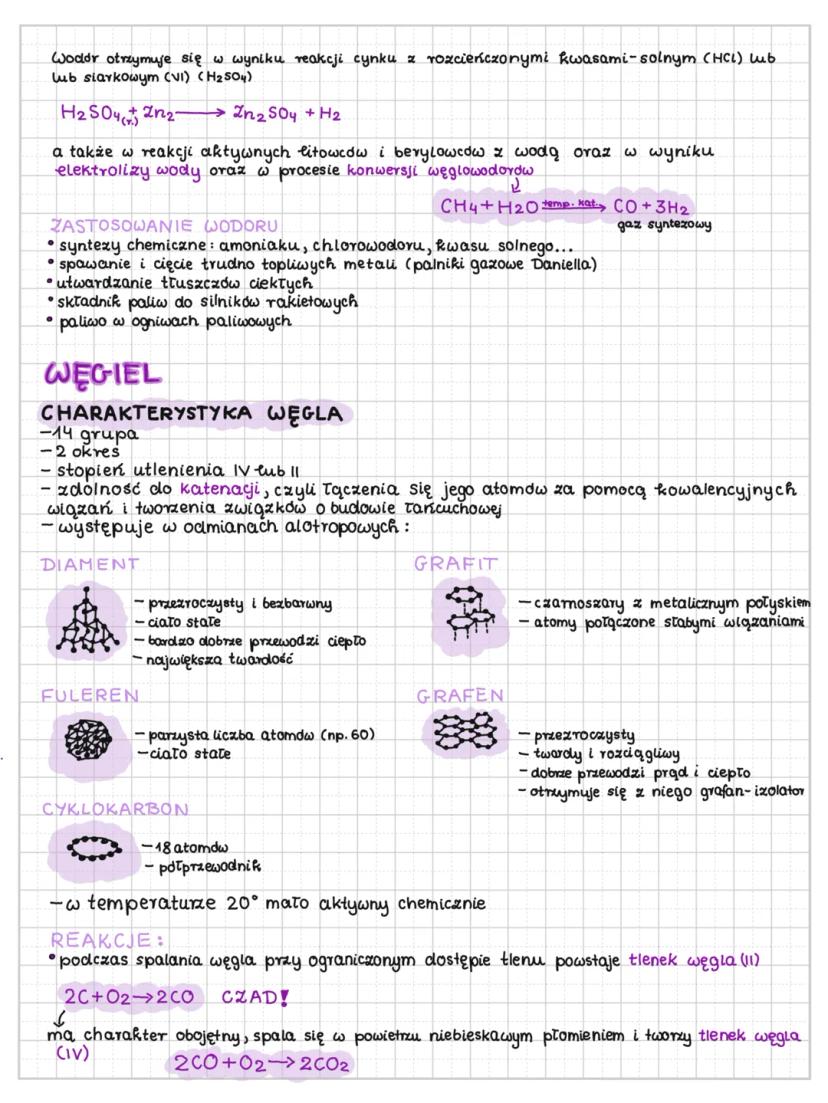 Wodór otrzymuje się w wyniku reakcji cynku z rozcieńczonymi kwasami-solnym (HCl) lub
lub siarkowym (VI) (H₂SO₄)
H₂SO₄(r.) + Zn₂ ⟶ Zn₂SO₄ + H₂
a także w reakcji aktywnych litowców i berylowców z wodą oraz w wyniku
elektrolizy wody oraz w procesie konwersji węglowodorów
↓
CH₄ + H₂O temp. kat. → CO + 3H₂
gaz syntezowy
ZASTOSOWANIE WODORU
• syntezy chemiczne: amoniaku, chlorowodoru, kwasu solnego...
• spawanie i cięcie trudno topliwych metali (palniki gazowe Daniella)
• utwardzanie tłuszczów ciekłych
• składnik paliw do silników rakietowych
• paliwo w ogniwach paliwowych
WĘGIEL
CHARAKTERYSTYKA WĘGLA
-14 grupa
-2 okres
- stopień utlenienia IV lub II
- zdolność do katenacji, czyli łączenia się jego atomów za pomocą kowalencyjnych
wiązań i tworzenia związków o budowie łańcuchowej
- występuje w odmianach alotropowych:
DIAMENT
- przezroczysty i bezbarwny
- ciało stałe
- bardzo dobrze przewodzi ciepło
- największa twardość
GRAFIT
- czarnoszary z metalicznym połyskiem
- atomy połączone słabymi wiązaniami
FULEREN
- parzysta liczba atomów (np. 60)
- ciało stałe
GRAFEN
- przezroczysty
- twardy i rozciągliwy
- dobrze przewodzi prąd i ciepło
- otrzymuje się z niego grafan-izolator
CYKLOKARBON
-18 atomów
- półprzewodnik
- w temperaturze 20° mało aktywny chemicznie
REAKCJE:
• podczas spalania węgla przy ograniczonym dostępie tlenu powstaje tlenek węgla (II)
2C + O₂ → 2CO CZAD!
↓
ma charakter obojętny, spala się w powietrzu niebieskawym płomieniem i tworzy tlenek węgla
(IV)
2CO + O₂ → 2CO₂